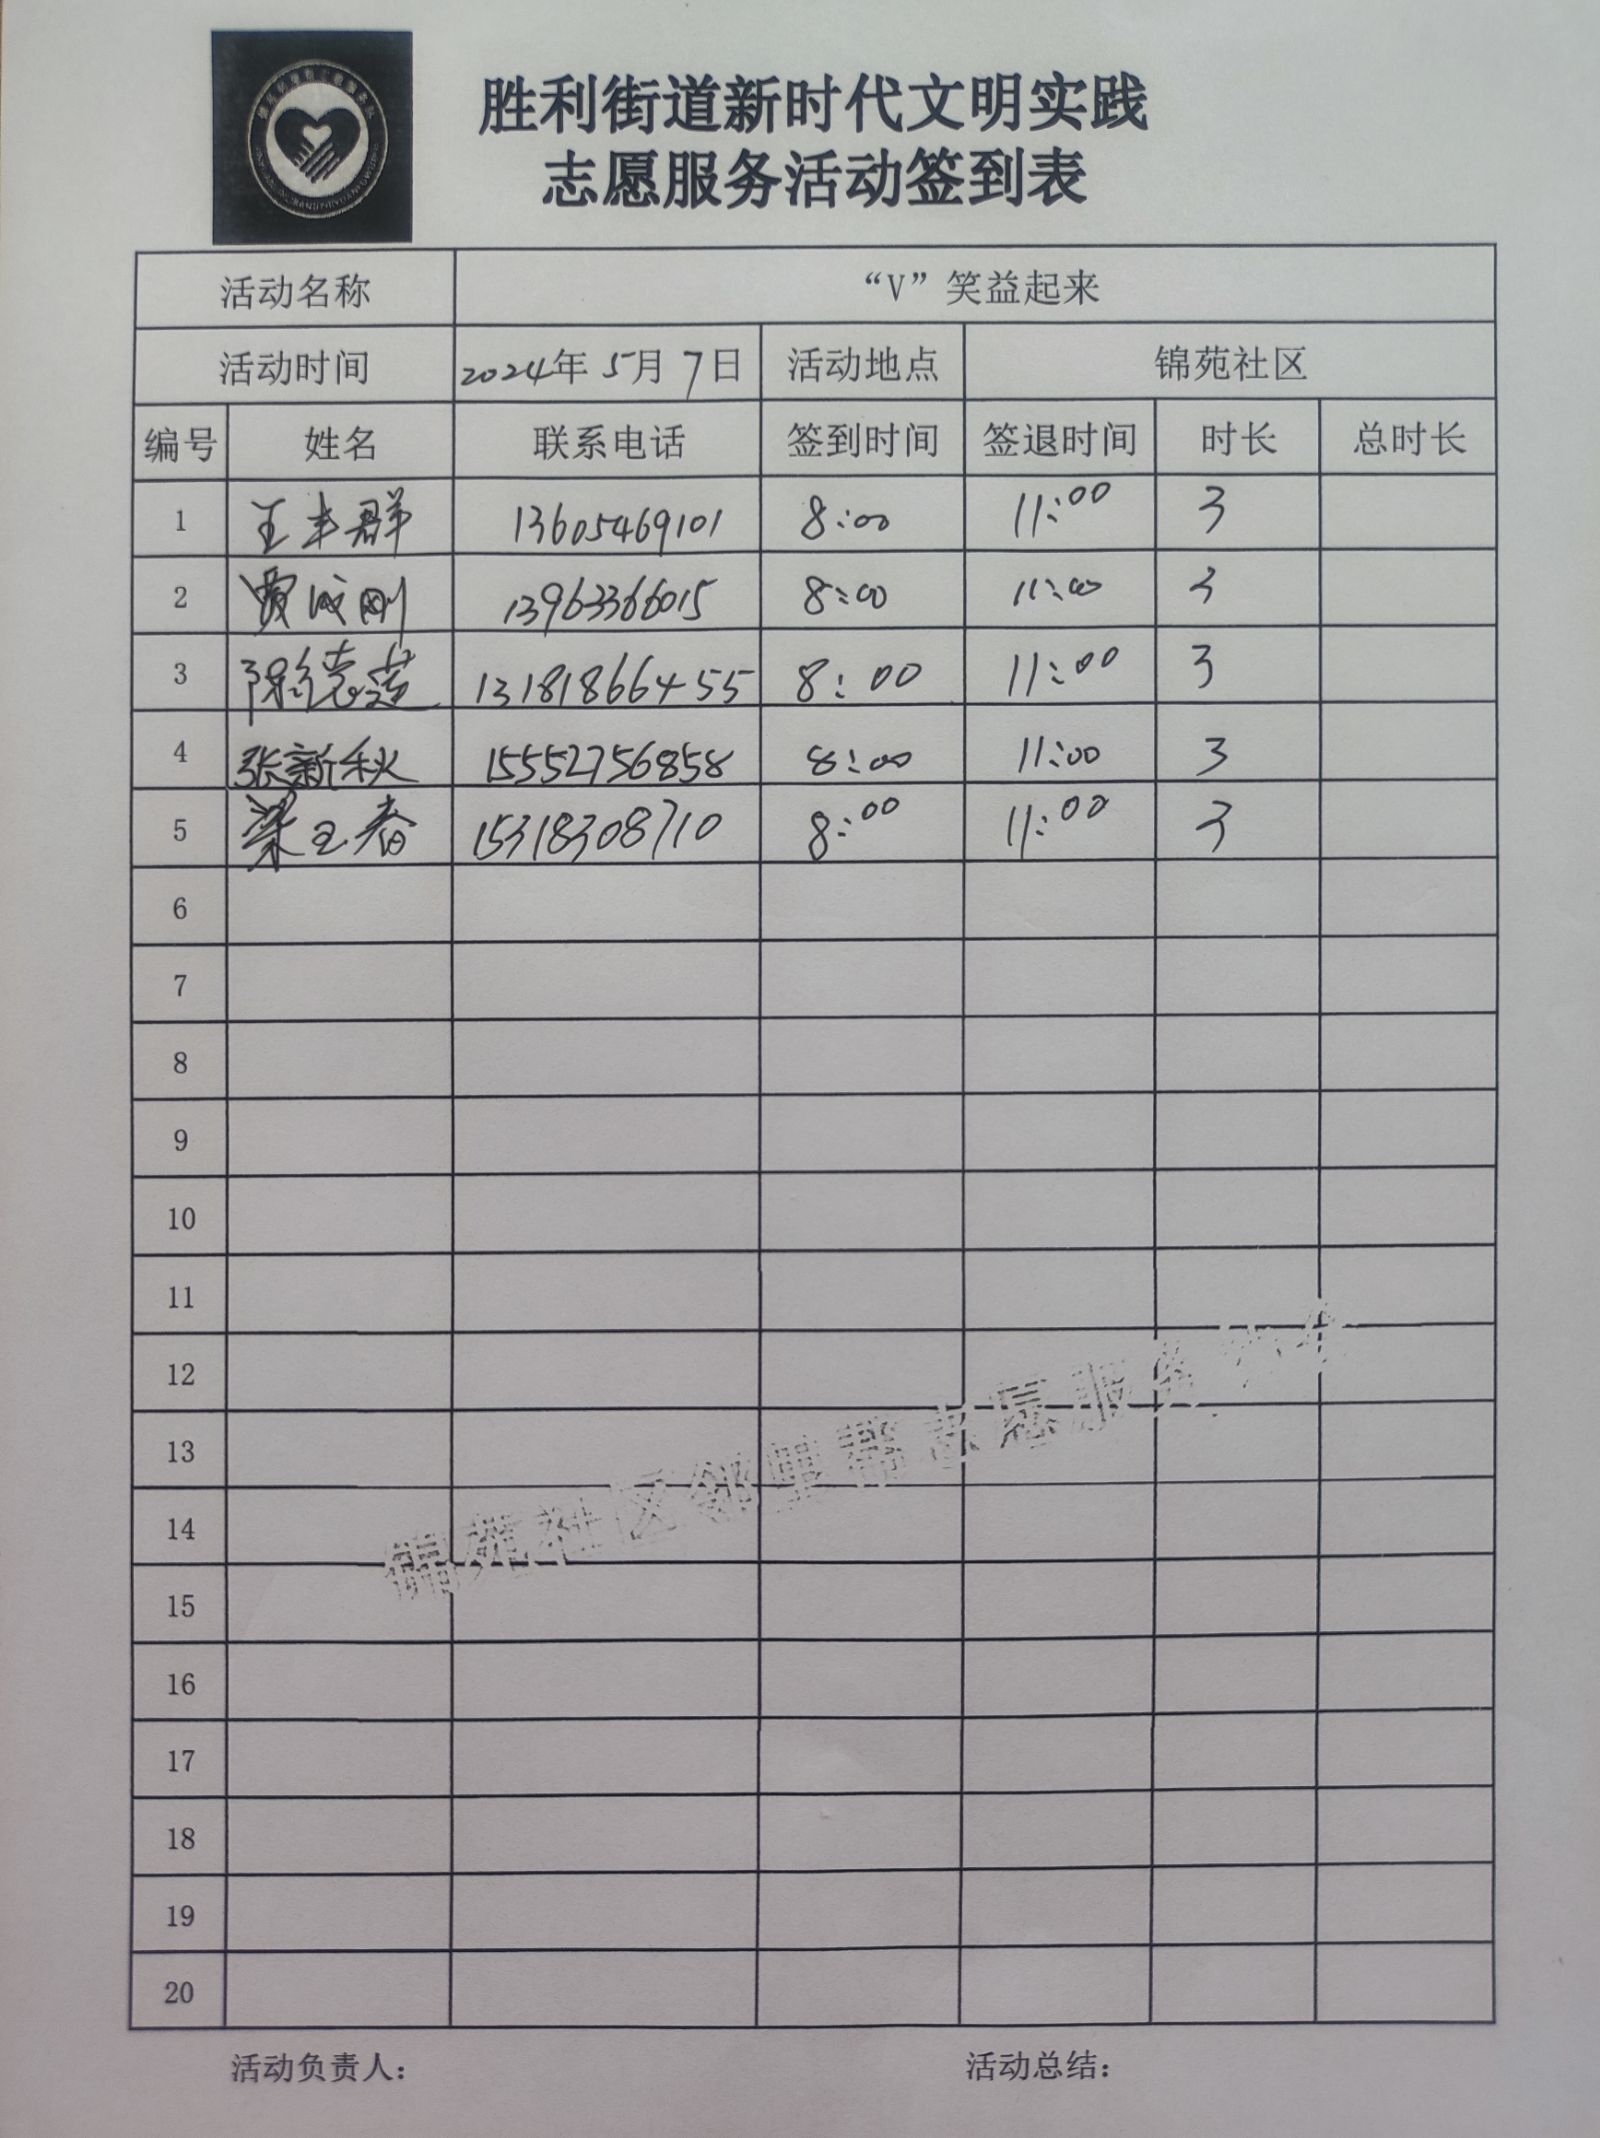 胜利街道新时代文明实践
志愿服务活动签到表
活动名称 “V”笑益起来
活动时间 2024年 5月 7日 活动地点 锦苑社区
编号 姓名 联系电话 签到时间 签退时间 时长 总时长
1 王丰群 13605469101 8:00 11:00 3
2 贾成刚 13963366015 8:00 11:00 3
3 陈德莲 13181866455 8:00 11:00 3
4 张新秋 15552756858 8:00 11:00 3
5 梁玉春 15318308710 8:00 11:00 3
6
7
8
9
10
11
12
13
14
15
16
17
18
19
20
锦苑社区邻里帮志愿服务
活动负责人: 活动总结: